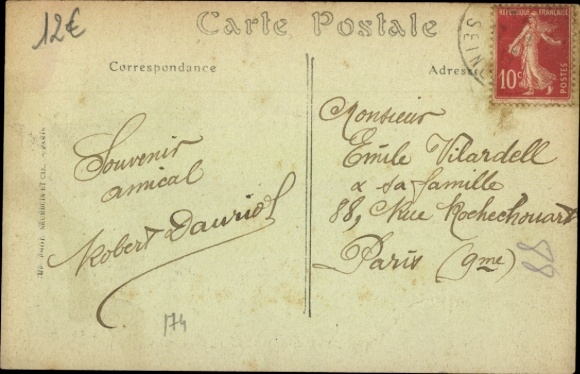 12€
Carte Postale
Correspondance
Adresse
SEINE
REPUBLIQUE FRANÇAISE
10c
POSTES
Souvenir
amical
Robert Dauriol
Monsieur
Emile Vilardell
& sa famille
88, Rue Rochechouart
Paris (9me)
174
PARIS